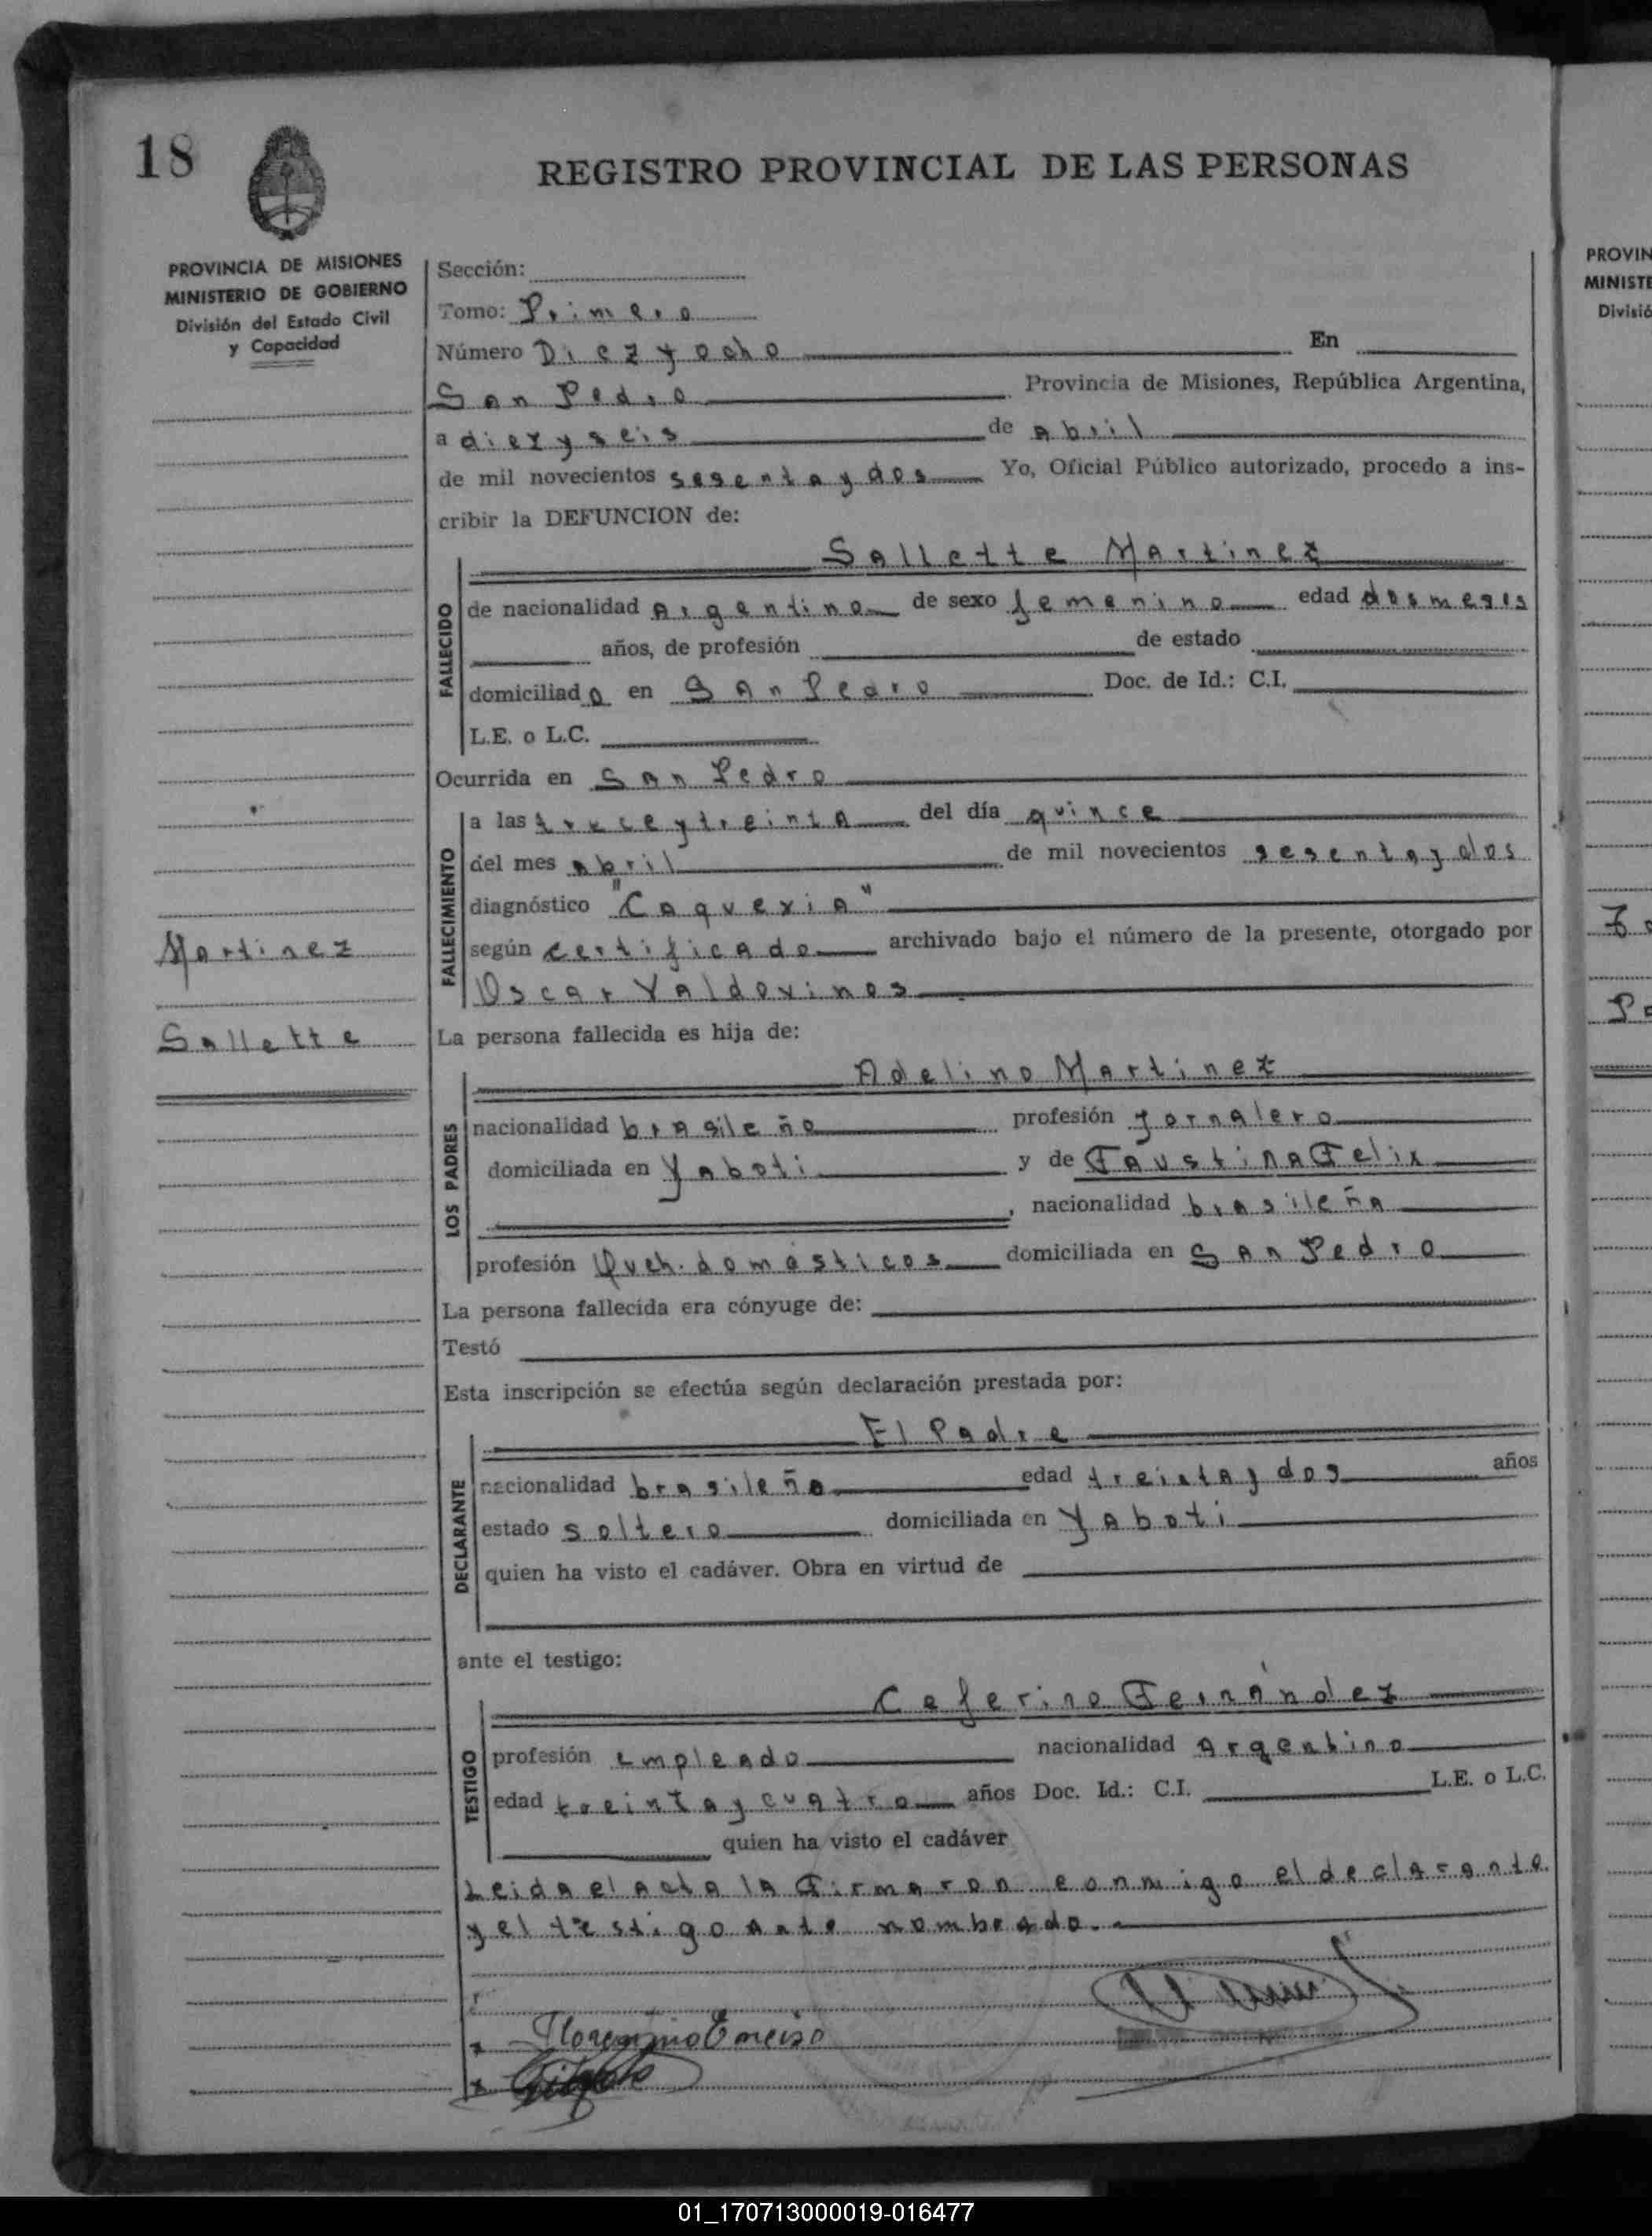 18
REGISTRO PROVINCIAL DE LAS PERSONAS
PROVINCIA DE MISIONES
MINISTERIO DE GOBIERNO
División del Estado Civil
y Capacidad
Sección:
Tomo: Primero
Número Diez y ocho En
San Pedro Provincia de Misiones, República Argentina,
a diez y seis de Abril
de mil novecientos sesenta y dos Yo, Oficial Público autorizado, procedo a ins-
cribir la DEFUNCION de:
Sallette Martinez
FALLECIDO
de nacionalidad Argentino de sexo femenino edad dos meses
años, de profesión de estado
domiciliado en San Pedro Doc. de Id.: C.I.
L.E. o L.C.
Ocurrida en San Pedro
FALLECIMIENTO
a las trece y treinta del día quince
del mes abril de mil novecientos sesenta y dos
diagnóstico "Caquexia"
según certificado archivado bajo el número de la presente, otorgado por
Oscar Valdovinos
Martinez
Sallette
La persona fallecida es hija de:
Adelino Martinez
LOS PADRES
nacionalidad brasileño profesión jornalero
domiciliada en Yaboti y de Faustina Felix
, nacionalidad brasileña
profesión Queh. domésticos domiciliada en San Pedro
La persona fallecida era cónyuge de:
Testó
Esta inscripción se efectúa según declaración prestada por:
El Padre
DECLARANTE
nacionalidad brasileño edad treinta y dos años
estado soltero domiciliada en Yaboti
quien ha visto el cadáver. Obra en virtud de
ante el testigo:
Ceferino Fernández
TESTIGO
profesión empleado nacionalidad Argentino
edad treinta y cuatro años Doc. Id.: C.I. L.E. o L.C.
quien ha visto el cadáver
Leida el acta la Firmaron conmigo el declarante
y el testigo ante nombrado.-
Enciso
PROVIN
MINISTE
Divisió
01_170713000019-016477